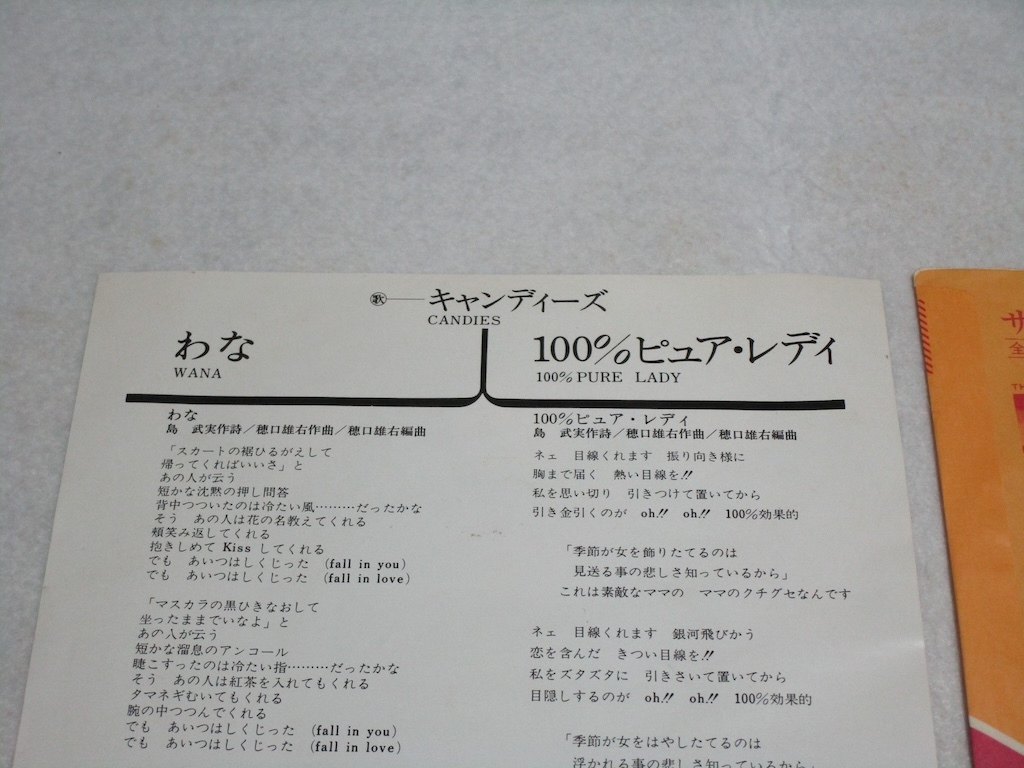 歌 キャンディーズ
CANDIES
わな
WANA
わな
島 武実作詩/穂口雄右作曲/穂口雄右編曲
「スカートの裾ひるがえして
帰ってくればいいさ」と
あの人が云う
短かな沈黙の押し問答
背中つついたのは冷たい風………だったかな
そう あの人は花の名教えてくれる
頬笑み返してくれる
抱きしめて Kiss してくれる
でも あいつはしくじった (fall in you)
でも あいつはしくじった (fall in love)
「マスカラの黒ひきなおして
坐ったままでいなよ」と
あの人が云う
短かな溜息のアンコール
睫こすったのは冷たい指………だったかな
そう あの人は紅茶を入れてもくれる
タマネギむいてもくれる
腕の中つつんでくれる
でも あいつはしくじった (fall in you)
でも あいつはしくじった (fall in love)
100%ピュア・レディ
100% PURE LADY
100%ピュア・レディ
島 武実作詩/穂口雄右作曲/穂口雄右編曲
ネェ 目線くれます 振り向き様に
胸まで届く 熱い目線を!!
私を思い切り 引きつけて置いてから
引き金引くのが oh!! oh!! 100%効果的
「季節が女を飾りたてるのは
見送る事の悲しさ知っているから」
これは素敵なママの ママのクチグセなんです
ネェ 目線くれます 銀河飛びかう
恋を含んだ きつい目線を!!
私をズタズタに 引きさいて置いてから
目隠しするのが oh!! oh!! 100%効果的
「季節が女をはやしたてるのは
浮かれる事の悲しさ知っているから」
サ
全
TH